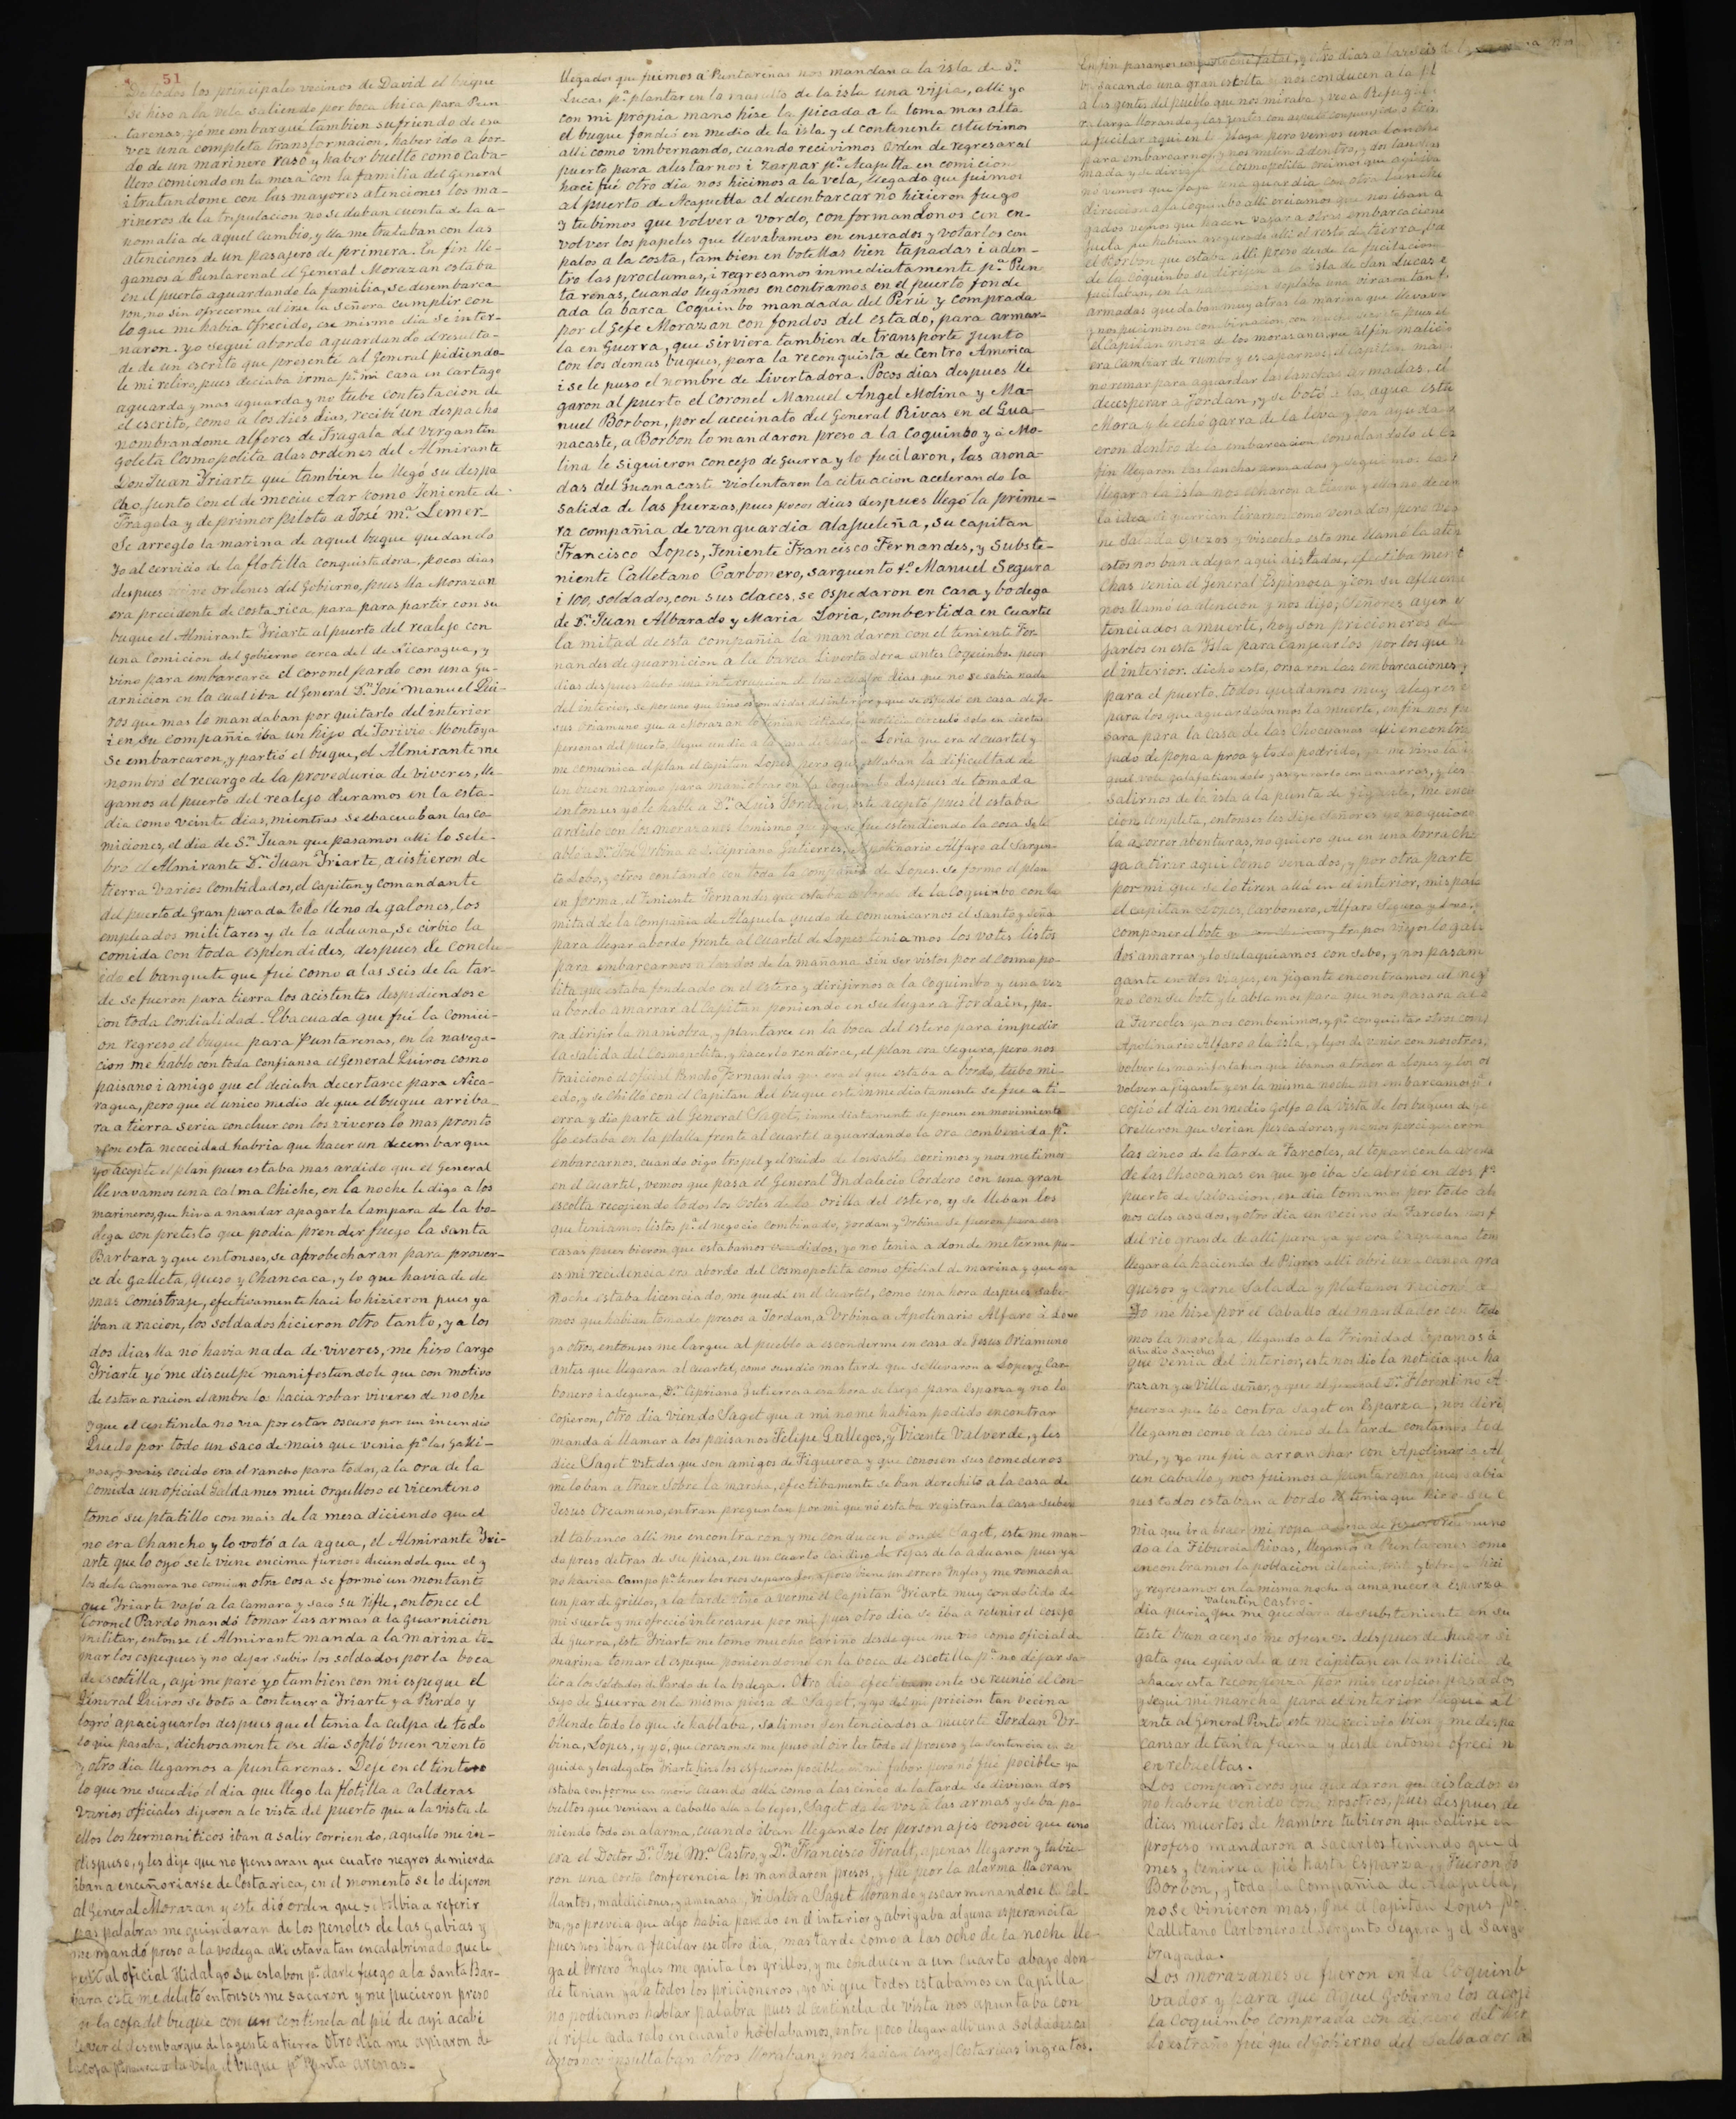 51
De todos los principales vecinos de David el buque
se hiso a la vela saliendo por boca chica para Pun-
tarenas, yo me embarqué tambien sufriendo de esa
vez una completa transformacion, haber ido a bor-
do de un marinero raso y haber buelto como Caba-
llero comiendo en la mesa con la familia del General
i tratandome con las mayores atenciones los ma-
rineros de la tripulacion no se daban cuenta de la a-
nomalia de aquel cambio, y lla me trataban con las
atenciones de un pasajero de primera. En fin lle-
gamos á Puntarenas el General Morazan estaba
en el puerto aguardando la familia, se desembarca-
ron, no sin ofrecerme al irse la Señora cumplir con
lo que me habia ofrecido, ese mismo dia se inter-
naron. yo seguí abordo aguardando el resulta-
de de un escrito que presenté al General pidiendo-
le mi retiro, pues deciaba irme pª mi casa en Cartago
aguarda y mas aguarda y no tube contestacion de
el escrito, como a los dies dias, recibí un despacho
nombrandome alferes de Fragata del Vergantin
Goleta Cosmopolita a las ordenes del Almirante
Don Juan Yriarte que tambien le llegó su despa
cho, junto con el de como Teniente de
Fragata y de primer piloto a José mª Lemer-
Se arregló la marina de aquel buque quedando
yo al cervicio de la flotilla conquistadora, pocos dias
despues ordenes del Gobierno, pues lla Morazan
era precidente de Costa rica, para para partir con su
buque el Almirante Yriarte al puerto del realejo con
una Comicion del gobierno cerca del de Nicaragua, y
vino para embarcarce el coronel pardo con una Gu-
arnicion en la cual iba el General Dn José Manuel Qui-
ros que mas lo mandaban por quitarlo del interior
i en su compañia iba un hijo de Torivio Montoya
se embarcaron, y partió el buque, el Almirante me
nombró el recargo de la proveduria de viveres, lle-
gamos al puerto del realejo duramos en la esta-
dia como veinte dias, mientras se ebacuaban las co-
miciones, el dia de Sn Juan que pasamos alli lo sele-
bró el Almirante Dn Juan Yriarte, acistieron de
tierra varios combidados, el capitan y comandante
del puerto de Gran parada todo lleno de galones, los
empleados militares y de la aduana, se cirbió la
comida con toda esplendides, despues de conclu-
ido el banquete que fué como a las seis de la tar-
de se fueron para tierra los acistentes despidiendose
con toda cordialidad. Ebacuada que fué la comici-
on regresó el buque para Puntarenas, en la navega-
cion me habló con toda confiansa el General Quiros como
paisano i amigo que el deciaba decertarce para Nica-
ragua, pero que el unico medio de que el buque arriba-
ra a tierra seria concluir con los viveres lo mas pronto
y con esta nececidad habria que hacer un decembarque
yo acepté el plan pues estaba mas ardido que el General
llevavamos una calma chiche, en la noche le digo a los
marineros, que hiva a mandar apagar la lampara de la bo-
dega con pretesto que podia prender fuego la santa
Barbara y que entonses, se aprobecharan para prover-
ce de galleta, queso y chancaca, y lo que havia de de
mas comistraje, efectivamente haci lo hisieron pues ya
iban a racion, los soldados hicieron otro tanto, y a los
dos dias lla no havia nada de viveres, me hiso cargo
Yriarte yó me disculpé manifestandole que con motivo
de estar a racion el ambre los hacia robar viveres de noche
y que el centinela no via por estar oscuro por un incendio
Quedó por todo un saco de mais que venia pª las galli-
nas, y mais cocido era el rancho para todos, a la ora de la
comida un oficial Galdames mui orgulloso el vicentino
tomó su platillo con mais de la mesa diciendo que el
no era chancho y lo votó a la agua, el Almirante Yri-
arte que lo oyó se le viene encima furioso diciendole que el y
los de la camara no comian otra cosa se formó un montante
que Yriarte vajó a la camara y sacó su rifle, entonce el
Coronel Pardo mandó tomar las armas a la guarnicion
militar, entonse el Almirante manda a la marina to-
mar los espeques y no dejar subir los soldados por la boca
de escotilla, ayi me paré yo tambien con mi espeque el
General Quiros se botó a contener a Yriarte y a Pardo y
logró apaciguarlos despues que el tenia la culpa de todo
lo que pasaba, dichosamente ese dia sopló buen viento
y otro dia llegamos a puntarenas. Deje en el tintero
lo que me sucedio el dia que llego la flotilla a Calderas
Varios oficiales dijeron a lo vista del puerto que a la vista de
ellos los hermaniticos iban a salir corriendo, aquello me in-
dispuso, y les dije que no pensaran que cuatro negros de mierda
iban a enceñoriarse de Costa rica, en el momento se lo dijeron
al General Morazan y este dió orden que si bolbia a referir
esas palabras me guindaran de los penoles de las gabias y
me mandó preso a la vodega allí estava tan encalabrinado que le
pedí al oficial Hidalgo su eslabon pª darle fuego a la santa Bar-
bara este me delató entonses me sacaron y me pucieron preso
en la cofa del buque con un centinela al pié de ayi acabé
de ver el desembarque de la gente a tierra otro dia me apiaron de
la cofa a la vela el buque pª Punta arenas.
llegados que fuimos a Puntarenas nos mandan a la isla de Sn
Lucas pª plantar en la mas alto de la isla una vijia, alli yo
con mi propia mano hise la picada a la loma mas alta
el buque fondeó en medio de la isla y el contenente estubimos
alli como imbernando, cuando recivimos orden de regresar al
puerto para alistarnos i zarpar pª Acajutla en comicion
haci fué otro dia nos hicimos a la vela, llegado que fuimos
al puerto de Acajutla al decenbarcar no hicieron fuego
y tubimos que volver a vordo, conformandonos con en-
volver los papeles que llevabamos en enserados y votarlos con
palos a la costa, tambien en botellas bien tapadas i aden-
tro las proclamas, i regresamos inmediatamente pª Pun
ta renas, cuando llegámos encontramos en el puerto fonde
ada la barca Coquinbo mandada del Perú y comprada
por el Gefe Morazan con fondos del estado, para armar-
la en Guerra, que sirviera tambien de transporte junto
con los demas buques, para la reconquista de Centro America
i se le puso el nombre de Livertadora. Pocos dias despues lle
garon al puerto el coronel Manuel Angel Molina y Ma-
nuel Borbon, por el acecinato del General Rivas en el Gua-
nacaste, a Borbon lo mandaron preso a la Coquinbo y á Mo-
lina le siguieron concejo de guerra y lo fucilaron, las asona-
das del Guanacaste violentaron la cituacion acelerando la
salida de las fuerzas, pues pocos dias despues llegó la prime-
ra compañia de vanguardia alajueleña, su capitan
Francisco Lopes, Teniente Francisco Fernandes, y Subste-
niente Calletano Carbonero, sarguento 1º Manuel Segura
i 100, soldados, con sus claces, se ospedaron en casa y bodega
de Dn Juan Albarado y Maria Loria, combertida en cuartel
la mitad de esta compañia la mandaron con el teniente Fer-
nandes de guarnicion a la barca Livertadora antes Coquinbo. pocos
dias despues hubo una interrupcion de tres o cuatro dias que no se sabia nada
del interior, se por uno que vino escondido del interior y que se ospedó en casa de Je-
sus Oriamuno que a Morazan lo tenian citiado, la noticia circuló solo en ciertas
personas del puerto, llegue un dia a la casa de Maria Loria que era el cuartel y
me comunica el plan el capitan Lopes pero que allaban la dificultad de
un buen marino para maniobrar en la Coquinbo despues de tomada
entonses yo le hablé a Dn Luis Jordain, este aceptó pues el estaba
ardido con los morazanes lo mismo que yo se fue estendiendo la cosa se le
abló a Dn José Urbina a Dn Cipriano Gutierres, Apolinario Alfaro al Sargen-
to Lobo, y otros contando con toda la compañia de Lopes. Se formo el plan
en forma, el Teniente Fernandes que estaba a bordo de la Coquinbo con la
mitad de la Compañia de Alajuela quedo de comunicarnos el santo y seña
para llegar abordo frente al cuartel de Lopes teniamos los votes listos
para embarcarnos a las dos de la mañana sin ser vistos por el Cosmopo-
lita que estaba fondeado en el estero y dirijirnos a la coquimbo y una vez
a bordo amarrar al Capitan poniendo en su lugar a Jordain, pa-
ra dirijir la maniobra, y plantarce en la boca del estero para impedir
la salida del Cosmopolita, y hacerlo rendirce, el plan era seguro, pero nos
traicionó el oficial Pancho Fernandes que era el que estaba a bordo, tubo mi-
edo, y se chilló con el Capitan del buque este inmediatamente se fue a ti-
erra y dio parte al General Saget, inmediatamente se ponen en movimiento
Yo estaba en la plalla frente al cuartel aguardando la ora combenida pª
enbarcarnos, cuando oigo tropel y el ruido de los sables corrimos y nos metimos
en el cuartel, vemos que pasa el General Indalecio Cordero con una gran
escolta recojiendo todos los botes de la orilla del estero, y se lleban los
que teniamos listos pª el negocio combinado, Jordan y Urbina se fueron para sus
casas pues bieron que estabamos vendidos, yo no tenia a donde meterme pu-
es mi recidencia era abordo del Cosmopolita como oficial de marina y que esa
noche estaba licenciado, me quedé en el cuartel, como una hora despues sabe-
mos que habian tomado presos a Jordan, a Urbina a Apolinario Alfaro i Lovo
ya otros, entonses me largue al pueblo a esconderme en casa de Jesus Oriamuno
antes que llegaran al cuartel, como susedio mas tarde que se llevaron a Lopes y Car-
bonero i a Segura, Dn Cipriano Gutierres a esa hora se largo para Esparza y no lo
cojieron, otro dia viendo Saget que a mi no me habian podido encontrar
manda á llamar a los paisanos Felipe Gallegos, y Vicente Valverde, y les
dice Saget ustedes que son amigos de Figueroa y que conosen sus comederos
me lo ban a traer sobre la marcha, efectibamente se ban derechito a la casa de
Jesus Oreamuno, entran preguntan por mi que no estaba registran la casa suben
al tabanco alli me encontraron y me conducen donde Saget, este me man-
da preso detras de su piesa, en un cuarto caidiso de rejas de la aduana pues ya
no havia campo pª tener los reos separados a poco viene un errero Ingles y me remacha
un par de grillos, a la tarde vino a verme el Capitan Yriarte muy condolido de
mi suerte y me ofreció interesarse por mi pues otro dia se iba a reunir el consejo
de guerra, este Yriarte me tomo mucho cariño desde que me vio como oficial de
marina tomar el espeque poniendome en la boca de escotilla pª no dejar sa-
lir a los soldados de Pardo de la bodega. Otro dia efectibamente se reunió el con-
sejo de Guerra en la misma piesa de Saget, y yo del mi pricion tan vecina
ollendo todo lo que se hablaba, salimos sentenciados a muerte Jordan Ur-
bina, Lopes, y yo, que corazon se me puso al oir ler todo el proceso y la sentencia en se-
guida y los alegatos Yriarte hiso los esfuersos pocibles a mi fabor pero nó fué pocible ya
estaba conforme en morir cuando allá como a las cinco de la tarde se divisan dos
bultos que venian a caballo allá a lo lejos, Saget da la voz a las armas y se ba po-
niendo todo en alarma, cuando iban llegando los personajes conocí que uno
era el Doctor Dn José Mª Castro, y Dn Francisco Peralt, apenas llegaron y tubie-
ron una corta conferencia los mandaron presos, y fué peor la alarma lla eran
llantos, maldiciones, y amenasas, vi salir a Saget llorando y escarmenandose la cal-
va, yo preveia que algo habia pasado en el interior y abrigaba alguna esperancita
pues nos iban a fucilar ese otro dia, mas tarde como a las ocho de la noche lle-
ga el errero Ingles me quita los grillos, y me conducen a un cuarto abajo don-
de tenian ya a todos los pricioneros, yo vi que todos estabamos en capilla
no podiamos hablar palabra pues el centinela de vista nos apuntaba con
el rifle cada rato en cuanto hablabamos, entre poco llegan alli una soldadesca
unos nos insultaban otros lloraban y nos hacian cargos Costaricas ingratos.
En fin pasamos una noche fatal, y otro dias a las seis de la
sacando una gran escolta y nos conducen a la pl
a las gentes del pueblo que nos miraba y veo a Refugio
larga llorando y las gentes con aspecto conpunjidos
a fucilar aqui en la plaza pero vemos una lancha
para embarcarnos, y nos meten adentro, y dos lanchas
mada y se dirije a Cosmopolita creimos que aqui iba
nó vemos que pasa una guardia con otra lancha
direccion a la Coquinbo alli creiamos que nos iban a
gados vemos que hacen vajar a otras embarcacione
juela que habian asegurado alli el resto de tierra
el Borbon que estaba alli preso desde la fucilacion
de la Coquinbo se dirijen a la isla de San Lucas
armadas quedaban muy atras la marina que llevava
y nos pucimos en conbinacion con
el capitan Mora de los morazanes
era cambiar de rumbo y escaparnos, el capitan man
no remar para aguardar las lanchas armadas, el
decesperar a Jordan, y se botó a la agua este
Mora y le echó garra de la leva y con ayuda
eron dentro de la embarcacion consolandolo el Ca
fin llegaron las lanchas armadas y seguimos hast
llegar a la isla nos echaron a tierra y ellos se decia
la idea si querrian tirarnos como venados pero ve
ne salada quezos y viscocho esto me llamó la aten
estos nos ban a dejar aqui aislados, efectibament
chas venia el general Espinoza y con su afluencia
nos llamó la atencion y nos dijo; Señores ayer
tenciados a muerte, hoy son pricioneros de
jarlos en esta Isla para canjearlos por los que
el interior. dicho esto, orsaron las embarcaciones y
para el puerto, todos quedamos muy alegres
para los que aguardabamos la muerte, en fin nos fui
para para la casa de las Chocuanas alli encontra
jado de popa a proa y todo podrido, ya me vino la i
quel vote galafatiandolo y asigurarlo con amarras, y les
salirnos de la isla a la punta de Gigante, me encu
cion completa, entonses les dije señores yo no quiero
la a correr abenturas, no quiero que en una borrache
ga a tirar aqui como venados, y por otra parte
por mi que se lo tiren allá en el interior, mis pais
el capitan Lopes, Carbonero, Alfaro Segura y Lovo
componer el bote trapos viejos lo gala
dos amarras y lo sulaquiamos con sebo, y nos pasam
gante en dos viajes, en jigante encontramos al neg
no con su bote y le ablamos para que nos pasara al o
á Tarcoles ya nos combenimos, y pª conquistar otros com
Apolinario Alfaro a la isla, y lejos de venir con nosotros,
volverles manifestamos que ibamos a traer a Lopes y los ot
volver a jigante y en la misma noche nos embarcamos
cojió el dia en medio golfo a la vista de los buques de
crelleron que serian pescadores, y no nos persiguieron
las cinco de la tarde a Tarcoles, al topar con la arena
de las Chocoanas en que yo iba se abrió en dos, pª
puerto de salvacion, ese dia tomamos por todo ali
nos celes asados, y otro dia un vecino de Tarcoles nos
del rio grande de alli para ya yo era baqueano tom
llegar a la hacienda de Pigres alli abrí una canoa gra
quesos y carne salada y platanos racioné a
Yo me hise por el caballo del mandador con todo
mos la marcha, llegando a la Trinidad topamos á
que venia del interior, este nos dio la noticia que ha
razan y a Villa señor, y que el general Dn Florentino A
fuersa que iba contra Saget en Esparza, nos diri
llegamos como a las cinco de la tarde contamos tod
ral, y yo me fui a arranchar con Apolinario Al
un caballo y nos fuimos a puntarenas pues sabia
nes todos estaban a bordo y tenia que
nia que ir a traer mi ropa a casa de Jesus Oreamuno
do a la Tiburcia Rivas, llegamos a Puntarenas como
encontramos la poblacion silencia, triste y
y regresamos en la misma noche a amanecer a Esparza
Valentin Castro.
dia queria que me quedara de substeniente en su
teste buen acenso me ofrese V. despues de haber
gata que equivale a un capitan en la milicia, de
a hacer esta reconpensa por mis cervicios pasados
y segui mi marcha para el interior llegue al
ente al General Pinto este me recivio bien y me despa
cansar de tanta faena y desde entonse ofreci n
en rebueltas.
Los compañeros que quedaron que aislados es
no haberse venido con nosotros, pues despues de
dias muertos de hambre tubieron que salirse en
profeso mandaron a sacarlos teniendo que d
mes y venirse a pié hasta Esparza, y fueron Jo
Borbon, y toda la compañia de Alajuela,
no se vinieron mas, que el capitan Lopes Do.
Calletano Carbonero el Sergento Segura y el Sarge
bragada.
Los morazanes se fueron en la Coquinb
vador y para que aquel gobierno los acoji
la Coquimbo comprada con dinero del
lo estraño fué que el gobierno del Salvador